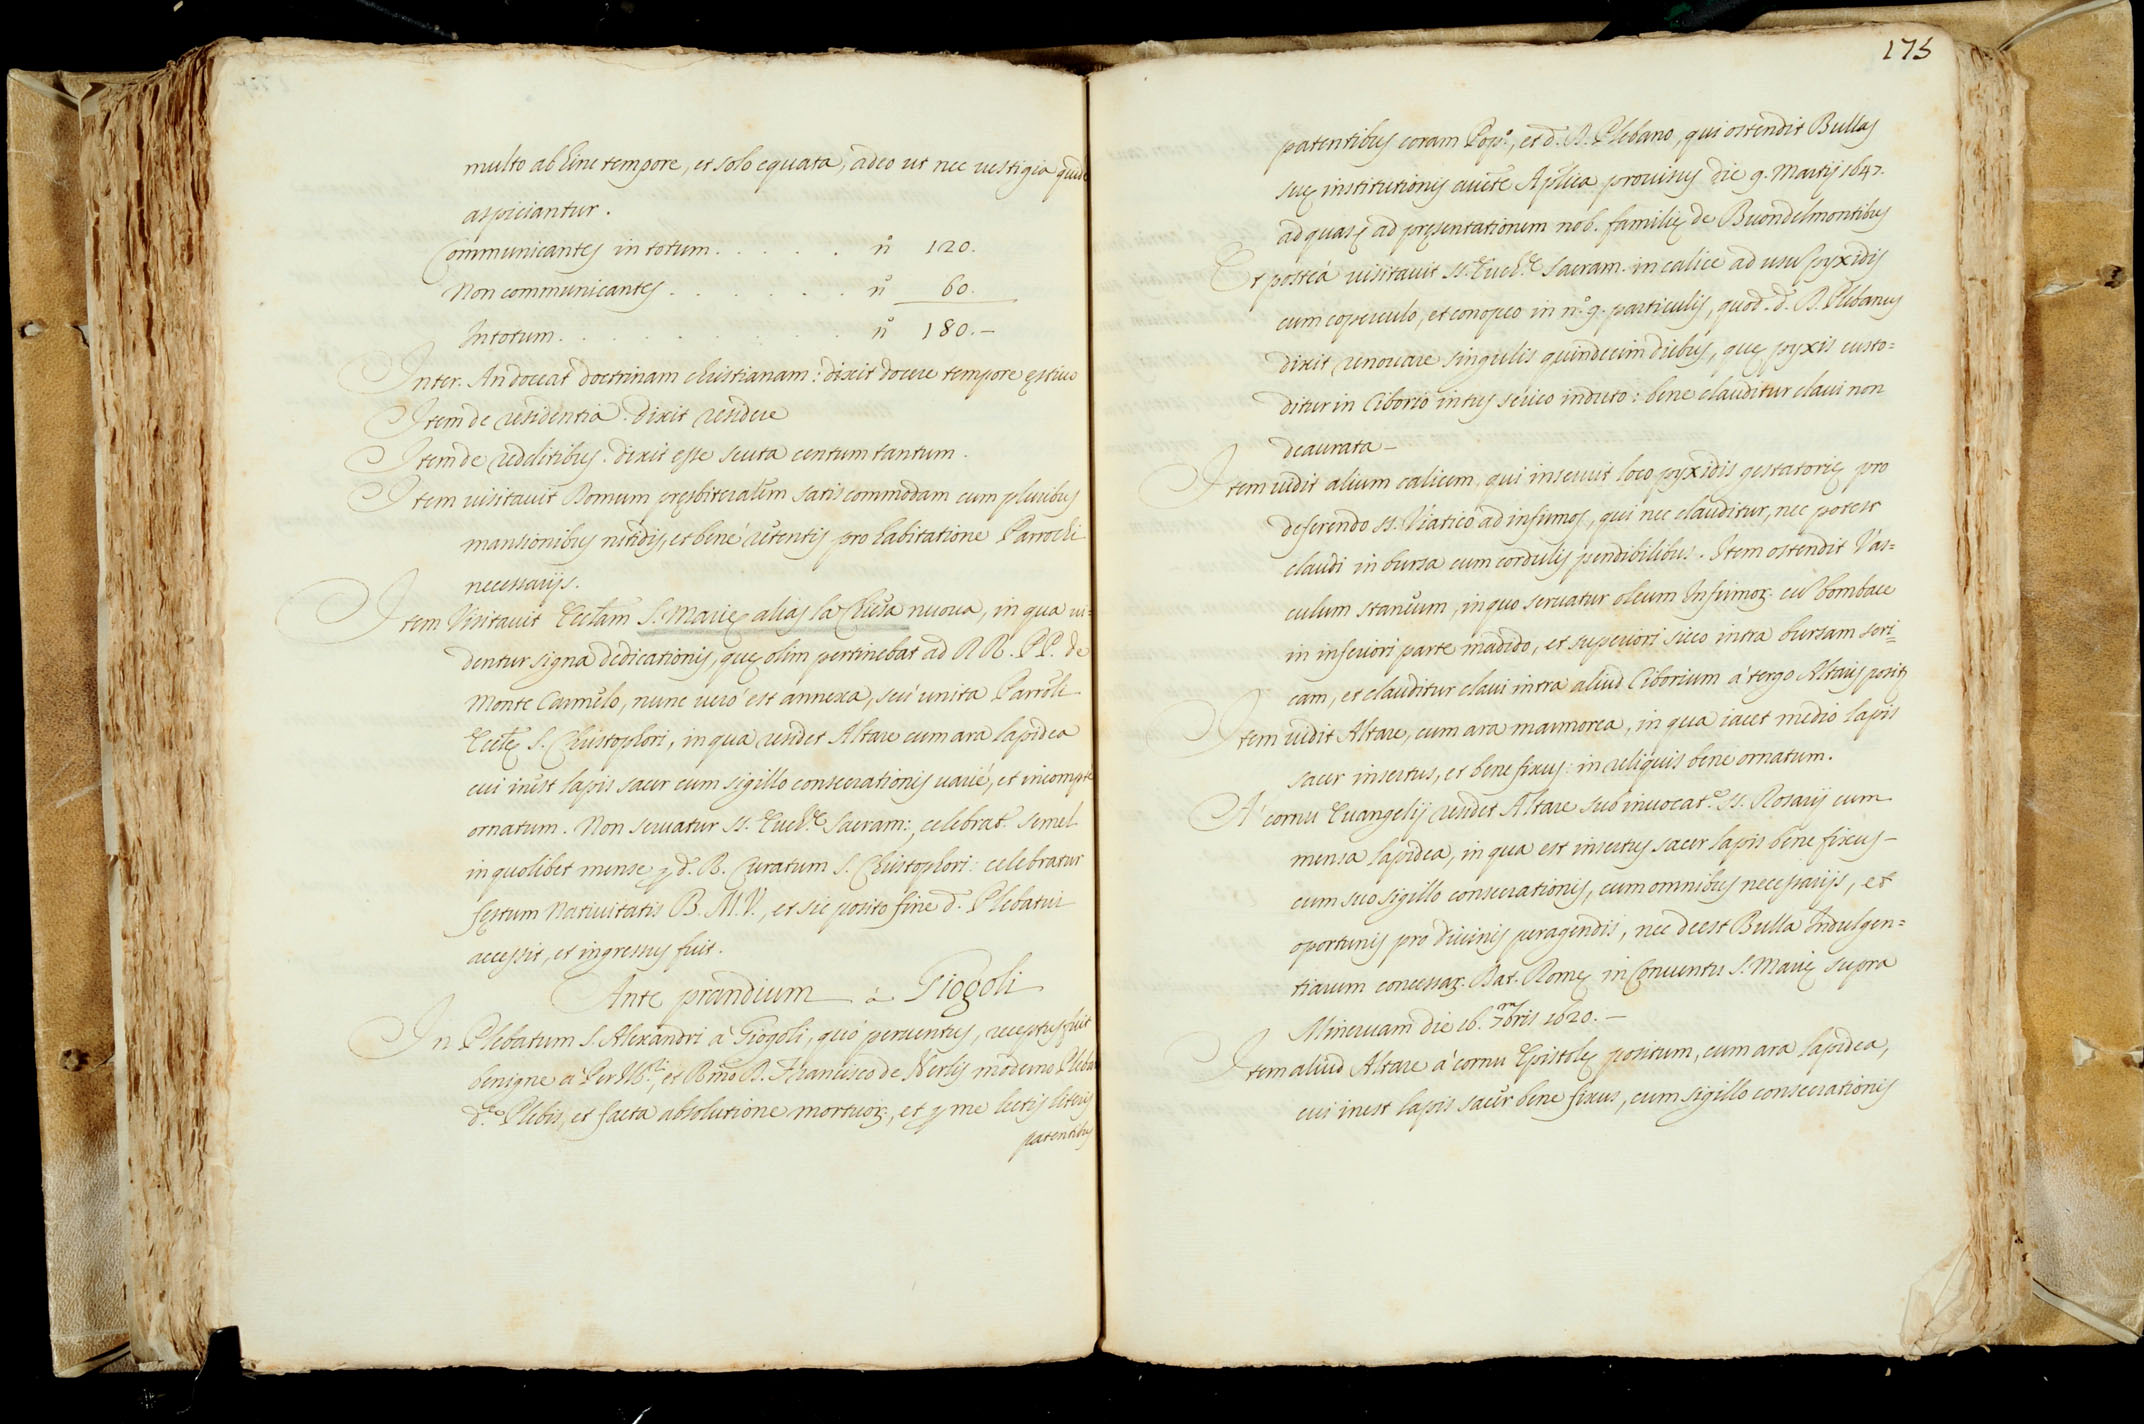 multo ab hinc tempore, et solo equata, adeo ut nec uestigia quidē
aspiciantur.
Communicantes in totum . . . . . n.º 120.
Non communicantes . . . . . . . n.º 60.
In totum . . . . . . . . . . n.º 180.—
Inter. An doceat doctrinam christianam: dixit docere tempore ęstiuo
Item de residentia. dixit residere
Item de redditibus. dixit esse scuta centum tantum.
Item uisitauit Domum pręsbiteralem satis commodam cum pluribus
mansionibus nitidis, et bene retentis pro habitatione Parrochi
necessarijs.
Item Visitauit Eccłam S. Marię alias la Chiesa nuoua, in qua ui=
dentur signa dedicationis, quę olim pertinebat ad RR. PP. de
Monte Carmelo, nunc uerò est annexa, seù unita Parroli
Eccłę S. Christophori, in qua residet Altare cum ara lapidea
cui inest lapis sacer cum sigillo consecrationis uarié, et incompte
ornatum. Non seruatur SS. Euch.ᵉ Sacram: celebrat. semel
in quolibet mense ꝑ d. R. Curatum S. Christophori: celebratur
festum Natiuitatis B. M. V., et sic posito fine d.º Plebatui
accessit, et ingressus fuit.
Ante prandium à Giogoli
In Plebatum S. Alexandri à Giogoli, quò peruentus, receptus fuit
benigne à Per Ill.ʳⁱ, et Rmo D. Francisco de Nerlis moderno Pleba
d.ᵃᵉ Plebis, et facta absolutione mortuoꝝ, et ꝑ me lectis literis
patentibus
175
patentibus coram Pop.º, et d. R. Plebano, qui ostendit Bullas
suę institutionis aucte Aplica prouisus die 9. Martij 1647.
ad quas, ad pręsentationem nob. familię de Buondelmontibus
Et posteà uisitauit SS. Euch.ᵉ Sacram. in calice ad usū pyxidis
cum coperculo, et conopeo in n.º 9. particulis, quod. d. R. Plebanus
dixit renouare singulis quindecim diebus, quę pyxis custo=
ditur in Ciborio intus serico induto: bene clauditur claui non
deaurata—
Item uidit alium calicem, qui inseruit loco pyxidis gestatorię pro
deferendo SS. Viatico ad infirmos, qui nec clauditur, nec potest
claudi in bursa cum cordulis pendibilibus. Item ostendit Vas=
culum staneum, in quo seruatur oleum Infirmoꝝ. cū bombace
in inferiori parte madido, et superiori sicco intra bursam seri=
cam, et clauditur claui intra aliud Ciborium á tergo Altaris posit
Item uidit Altare, cum ara marmorea, in qua iacet medio lapis
sacer insertus, et bene fixus: in reliquis bene ornatum.
A' cornu Euangelij residet Altare sub inuocat.ᵉ SS. Rosarij cum
mensa lapidea, in qua est insertus sacer lapis bene fixus—
cum suo sigillo consecrationis, cum omnibus necessarijs, et
oportunis pro diuinis peragendis, nec deest Bulla Indulgen=
tiarum concessaꝝ. Dat. Romę in Conuentu S. Marię supra
Mineruam die 16. 7bris 1620.—
Item aliud Altare á cornu Epistolę positum, cum ara lapidea,
cui inest lapis sacer bene fixus, cum sigillo consecrationis